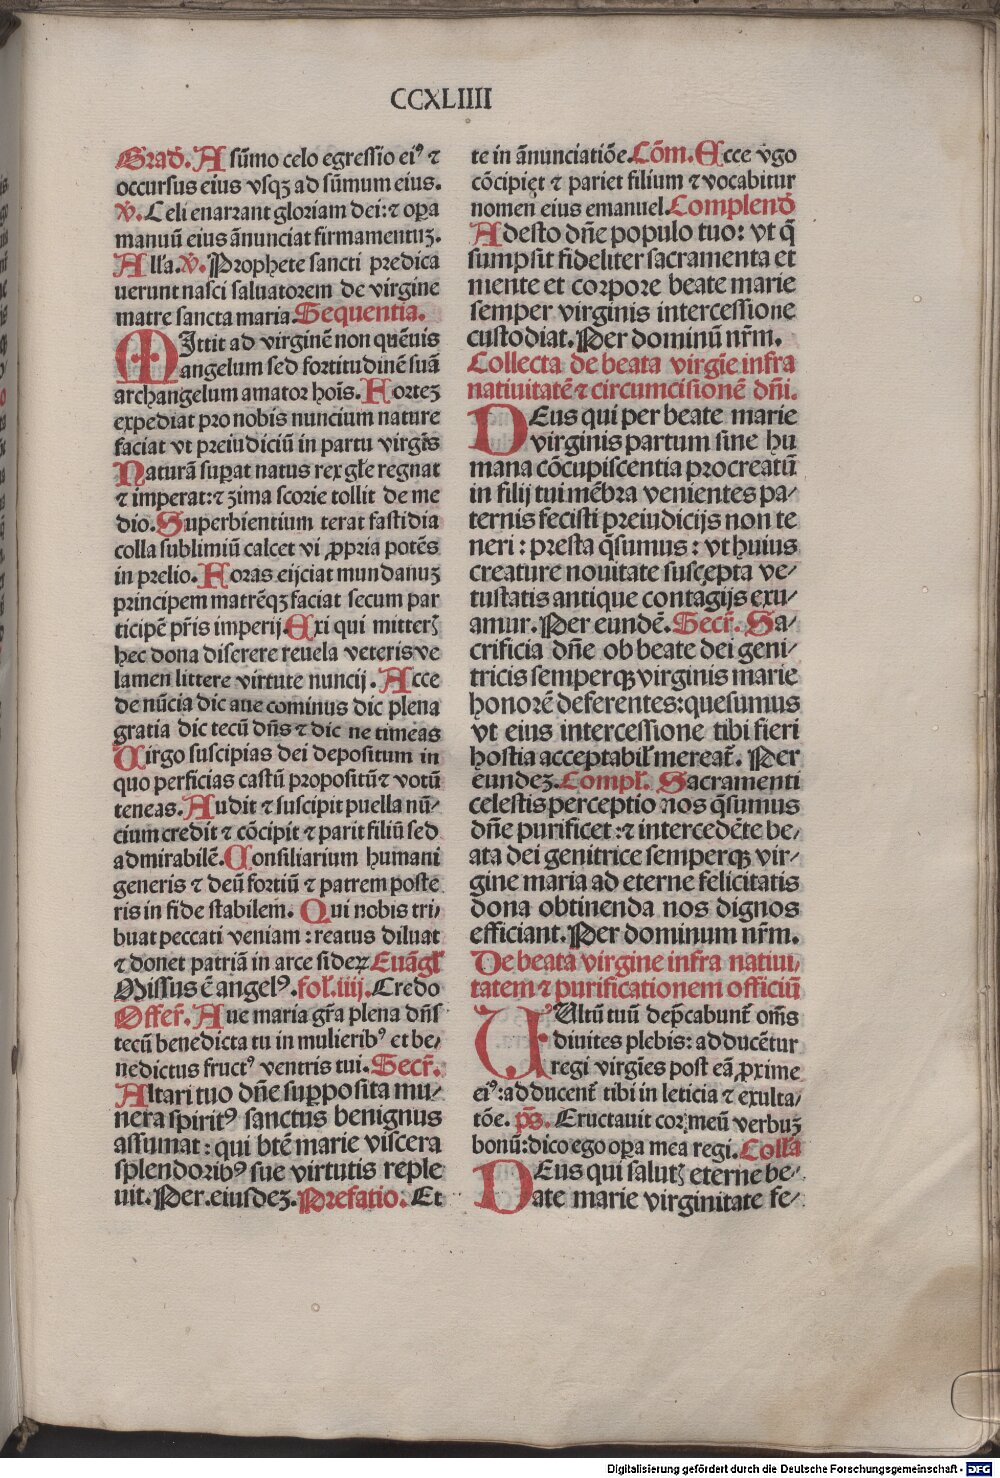 CCXLIIII
Grad̄. A sūmo celo egressio ei⁹ ⁊
occursus eius vsqꝫ ad sūmum eius.
℣. Celi enarrant gloriam dei: ⁊ oꝑa
manuū eius ānunciat firmamentuꝫ.
Alľa. ℣. Prophete sancti predica
uerunt nasci saluatorem de virgine
matre sancta maria. Sequentia.
MIttit ad virginē non quēuis
angelum sed fortitudinē suā
archangelum amator hoīs. Forteꝫ
expediat pro nobis nuncium nature
faciat vt preiudiciū in partu virgīs
Naturā suꝑat natus rex gľe regnat
⁊ imperat: ⁊ zima scorie tollit de me
dio. Superbientium terat fastidia
colla sublimiū calcet vi ꝓpria potēs
in prelio. Foras eijciat mundanuꝫ
principem matrēqꝫ faciat secum par
ticipē pr̄is imperij. Exi qui mitterꝭ
hec dona diserere reuela veteris ve
lamen littere virtute nuncij. Acce
de nūcia dic aue cominus dic plena
gratia dic tecū dn̄s ⁊ dic ne timeas
Virgo suscipias dei depositum in
quo perficias castū propositū ⁊ votū
teneas. Audit ⁊ suscipit puella nū-
cium credit ⁊ cōcipit ⁊ parit filiū sed
admirabilē. Consiliarium humani
generis ⁊ deū fortiū ⁊ patrem poste
ris in fide stabilem. Qui nobis tri-
buat peccati veniam: reatus diluat
⁊ donet patriā in arce sideꝝ Euāgľ
Missus ē angel⁹. fol. iiij. Credo
Offer̄. Aue maria gr̄a plena dn̄s
tecū benedicta tu in mulierib⁹ et be-
nedictus fruct⁹ ventris tui. Secr̄.
Altari tuo dn̄e suꝑposita mu-
nera spirit⁹ sanctus benignus
assumat: qui btē marie viscera
splendorib⁹ sue virtutis reple
uit. Per. eiusdeꝫ. Prefatio. Et
te in ānunciatiōe. Cōm. Ecce v̄go
cōcipiet ⁊ pariet filium ⁊ vocabitur
nomen eius emanuel. Complend̄
Adesto dn̄e populo tuo: vt q̄
sumpsit fideliter sacramenta et
mente et corpore beate marie
semper virginis intercessione
custodiat. Per dominū nr̄m.
Collecta de beata virgīe infra
natiuitatē ⁊ circumcisionē dn̄i.
DEus qui per beate marie
virginis partum sine hu
mana cōcupiscentia procreatū
in filij tui mēbra venientes pa-
ternis fecisti preiudicijs non te
neri: presta q̄sumus: vt huius
creature nouitate suscepta ve-
tustatis antique contagijs exu-
amur. Per eundē. Secr̄. Sa-
crificia dn̄e ob beate dei geni-
tricis semperqꝫ virginis marie
honorē deferentes: quesumus
vt eius intercessione tibi fieri
hostia acceptabiľ mereat̄. Per
eundeꝫ. Compľ. Sacramenti
celestis perceptio nos q̄sumus
dn̄e purificet: ⁊ intercedēte be-
ata dei genitrice semperqꝫ vir-
gine maria ad eterne felicitatis
dona obtinenda nos dignos
efficiant. Per dominum nr̄m.
De beata virgine infra natiui-
tatem ⁊ purificationem officiū
VUltū tuū dep̄cabunt̄ om̄s
diuites plebis: adducētur
regi virgīes post eā ꝓxime
ei⁹: adducent̄ tibi in leticia ⁊ exulta-
tōe. p̄s. Eructauit cor meū verbuꝫ
bonū: dico ego oꝑa mea regi. Colľa
DEus qui salutꝭ eterne be-
ate marie virginitate fe-
Digitalisierung gefördert durch die Deutsche Forschungsgemeinschaft - DFG